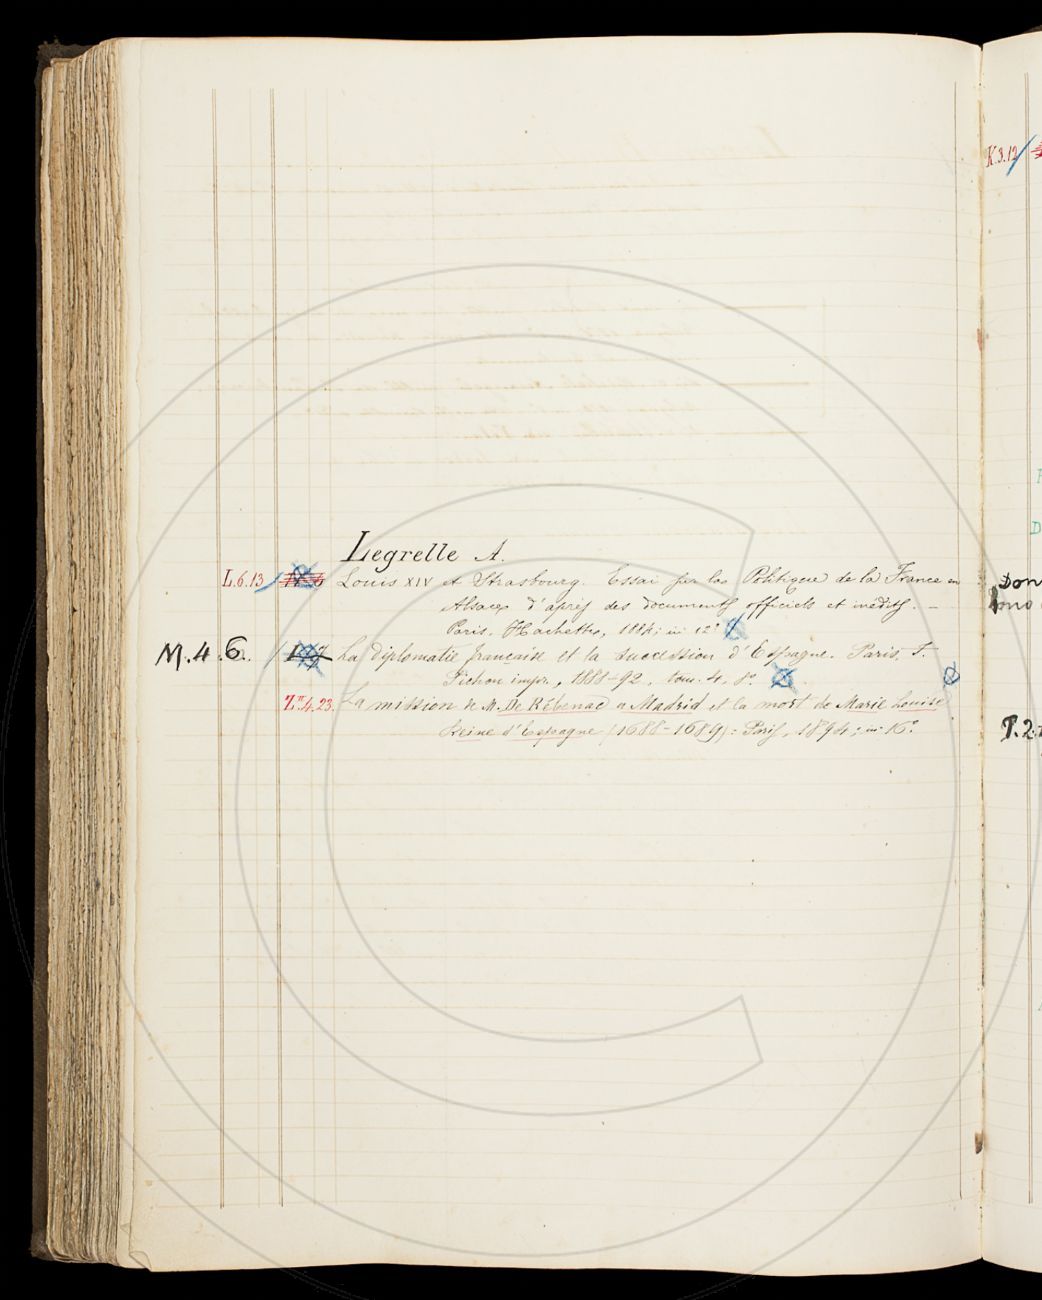 Legrelle A.
L.6.13 Louis XIV et Strasbourg. Essai sur la Politique de la France en
Alsace d'après des documents officiels et inédits. –
Paris, Hachette, 1884; in 12°
M.4.6. La diplomatie française et la succession d'Espagne. Paris, F.
Pichon impr., 1888-92, tom. 4, 8°.
Z.4.23. La mission de M. De Rébenac a Madrid et la mort de Marie Louise
Reine d'Espagne (1688-1689): Paris, 1894; in 16°
K.3.12
Don
P.2.